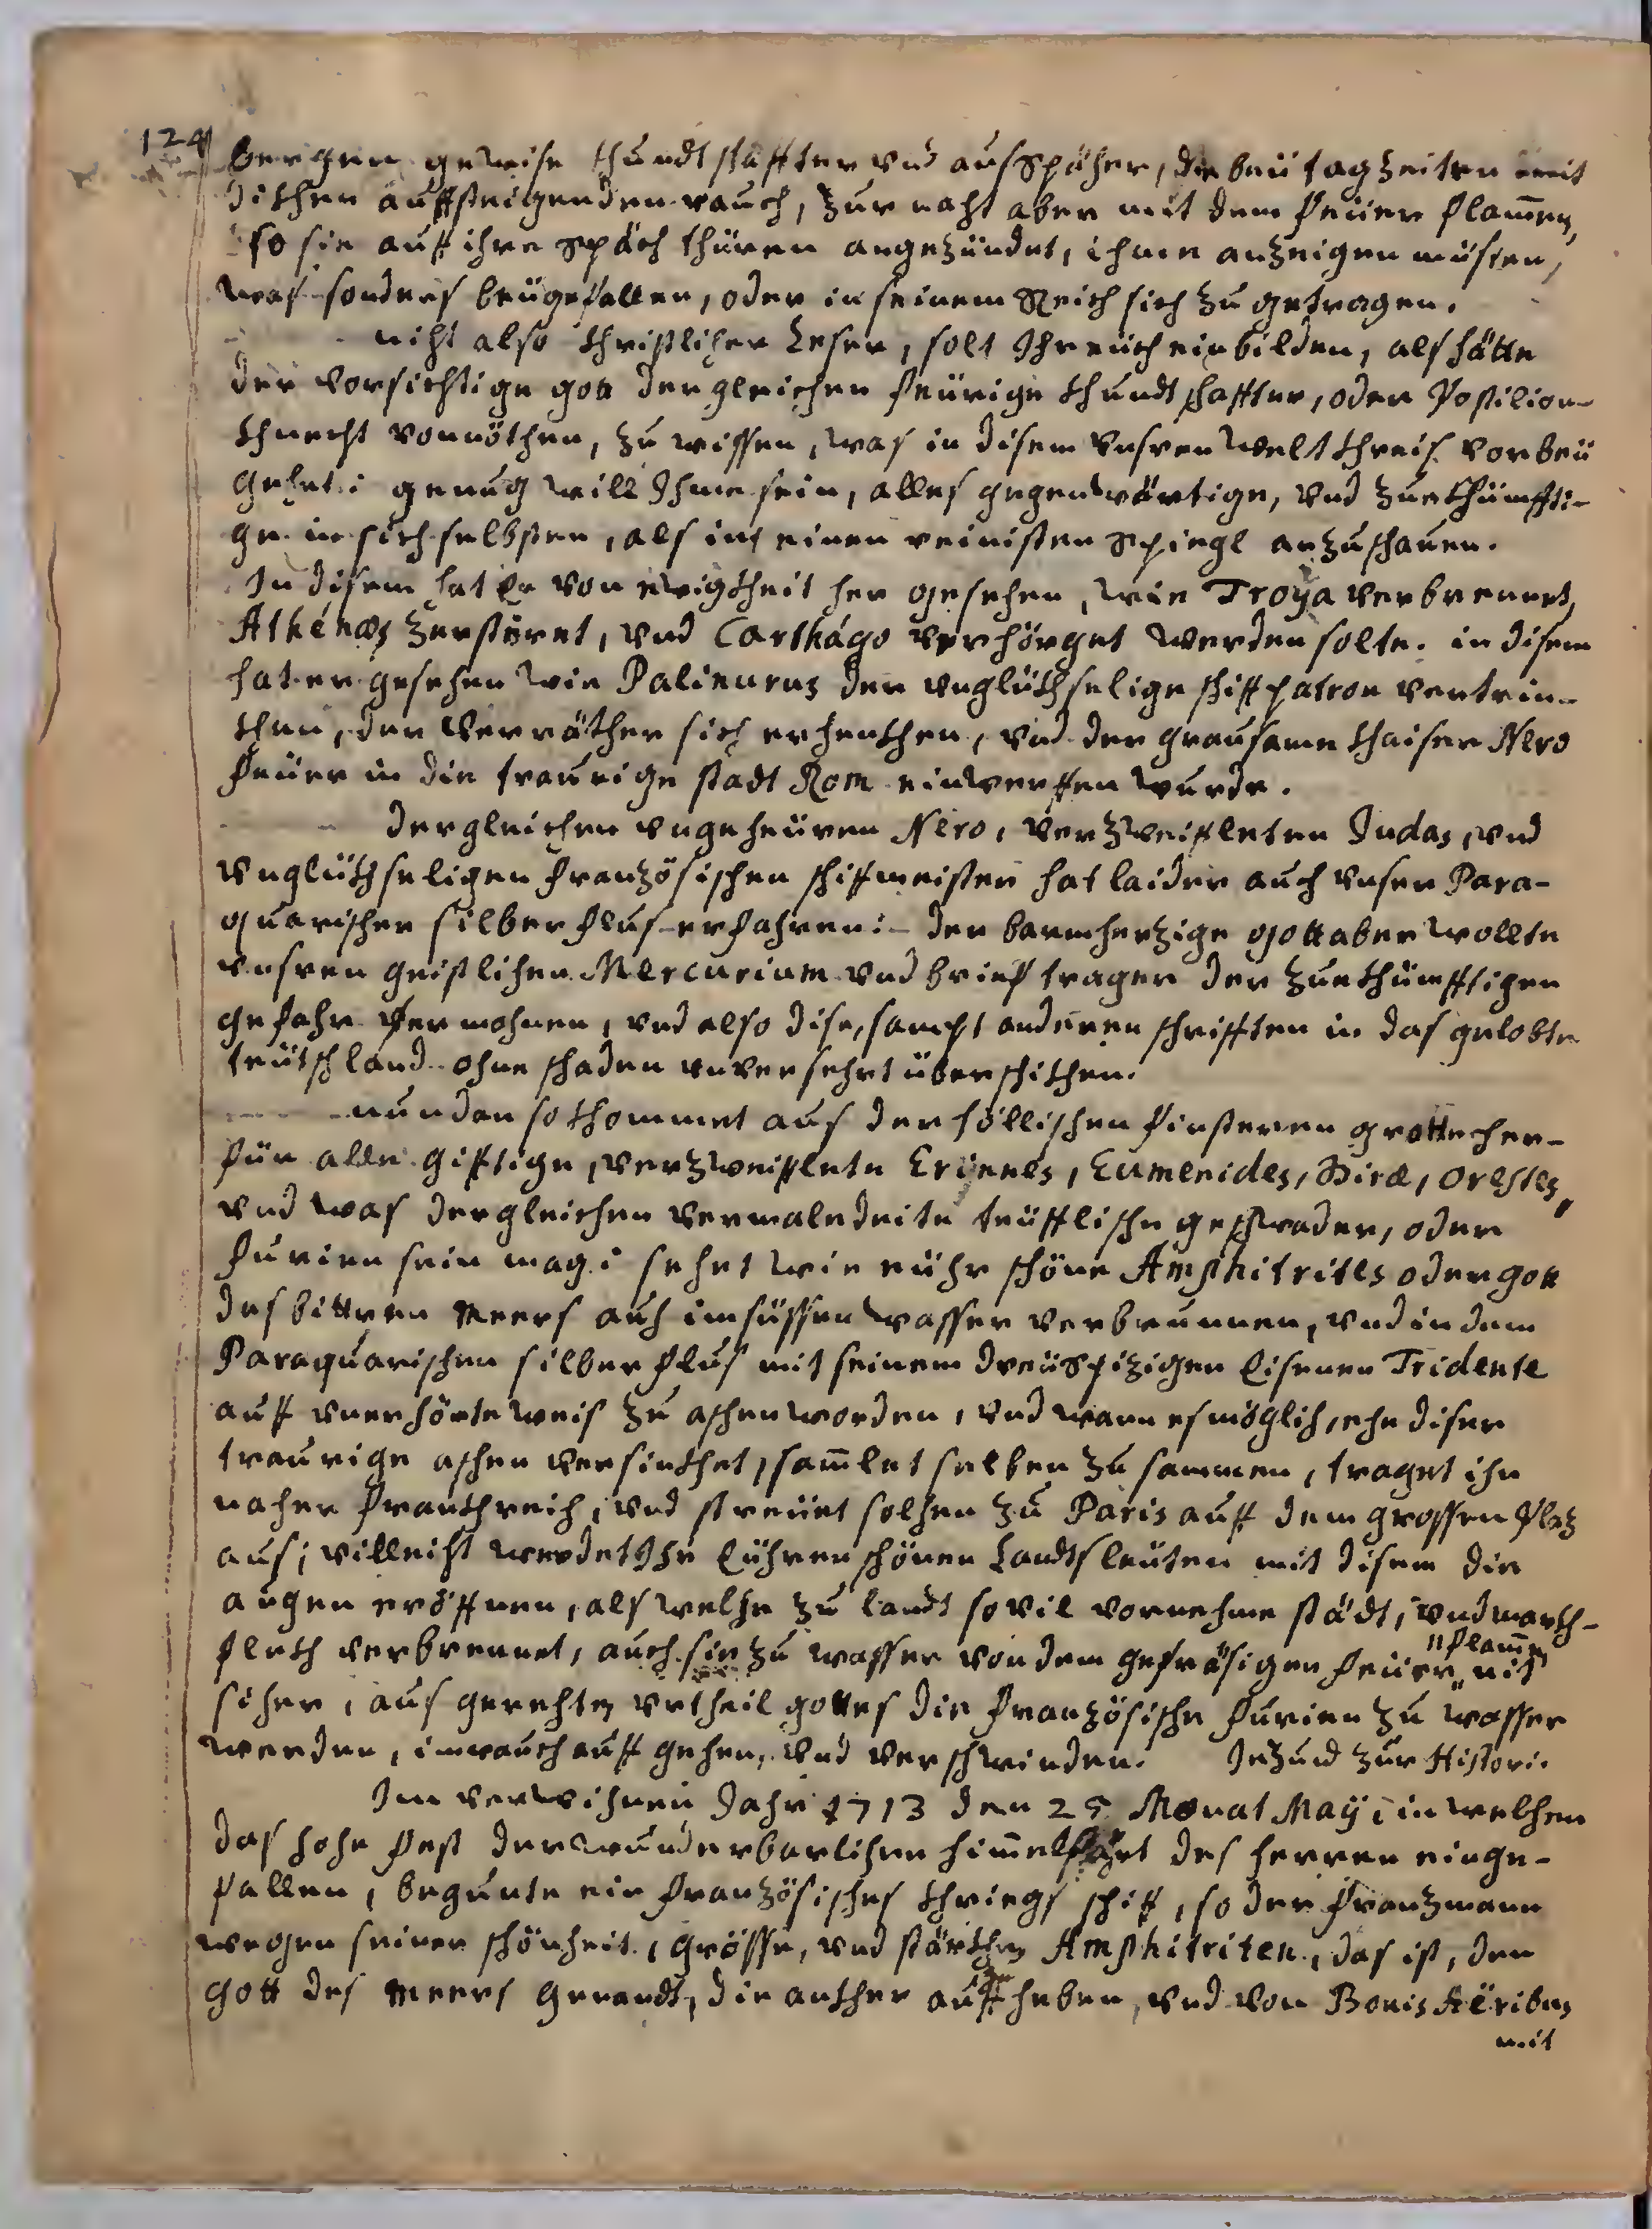 124
bergen gewise khundtschaffter vnd ausspäher, die beÿ tagzeiten mit
dikhen auffsteigenden rauch, zur nacht aber mit dem feüer flam̄en,
so sie auff ihre späch thüren angezündet, ihme anzeigen müsten,
was sonders beÿgefallen, oder in seinem Reich sich zu getragen.
nicht also christlicher Leser, solt Ihr eüch einbilden, als hätte
der vorsichtige gott dergleichen feürige khundtschaffter, oder Postilion-
khnecht vonnöthen, zu wissen, was in disem vnsren weltkhreis vorbeÿ
gehet: genug will Ihme sein, alles gegenwärtige, vnd zuekhümffti-
ge in sich selbsten, als in einen reinisten spiegl anzuschauen.
In disem hat Er von ewigkheit her gesehen, wie Troÿa verbrennet,
Athénas zerstöret, vnd Carthágo verhörget werden solte. in disem
hat er gesehen wie Palinurus der vnglükhselige schiffpatron vertrin-
khen, der verräther sich erhenkhen, vnd der grausame khaiser Nero
feüer in die traurige stadt Rom einwerffen wurde.
dergleichen vngeheüren Nero, verzweiffleten Judas, vnd
vnglükhseligen französischen schiffmeister hat laider auch vnser Para-
quarischer silberflus erfahren: der barmherzige gott aber wollte
vnsren geistlichen Mercurium vnd brieff trager der zuekhümfftigen
gefahr vermohnen, vnd also dise, sampt anderen schrifften in das gelobte
teütschland ohne schaden vnversehrt überschikhen.
nun dan so khommet aus der höllischen finsteren grotte her-
für alle gifftige, verzweifflete Erinnes, Eumenides, Diræ, Orestes,
vnd was dergleichen vermaledeite teüfflische geschwader, oder
furien sein mag: sehet wie eühr schöne Amphitrites oder gott
des bittren Meers auch im süssen wasser verbrunnen, vnd in dem
Paraquarischen silberflus mit seinem dreÿspizigen Eisenen Tridente
auff vnerhörte weis zu aschen worden, vnd wann es möglich, ehe diser
traurige aschen versinkhet, sam̄let selben zu sammen, traget ihn
naher frankhreich, vnd streüet solchen zu Paris auff dem grossen plaz
aus; villeicht werdet Ihr Eühren schönen Landtsleüten mit disem die
augen eröffnen, als welche zu landt so vil vornehme städt, vnd markh-
flekh verbrennet, auch sie zu wasser von dem gefräsigen feüer "flam̄en" nit
sicher, aus gerechten vrtheil gottes die französische furien zu wasser
werden, im rauch auff gehen, vnd verschwinden. Jezund zur Histori.
Im verwichnen Jahr 1713 den 25 Monat Maÿ: in welchem
das hohe fest der wunderbarlichen him̄elfahrt des herren einge-
fallen, begunte ein französisches khriegs schiff, so der franzmann
wegen seiner schönheit, grösse, vnd stärkhe Amphitriten, das ist, den
gott des Meers genandt, die ankher auff heben, vnd von Bonis Aëribus
mit